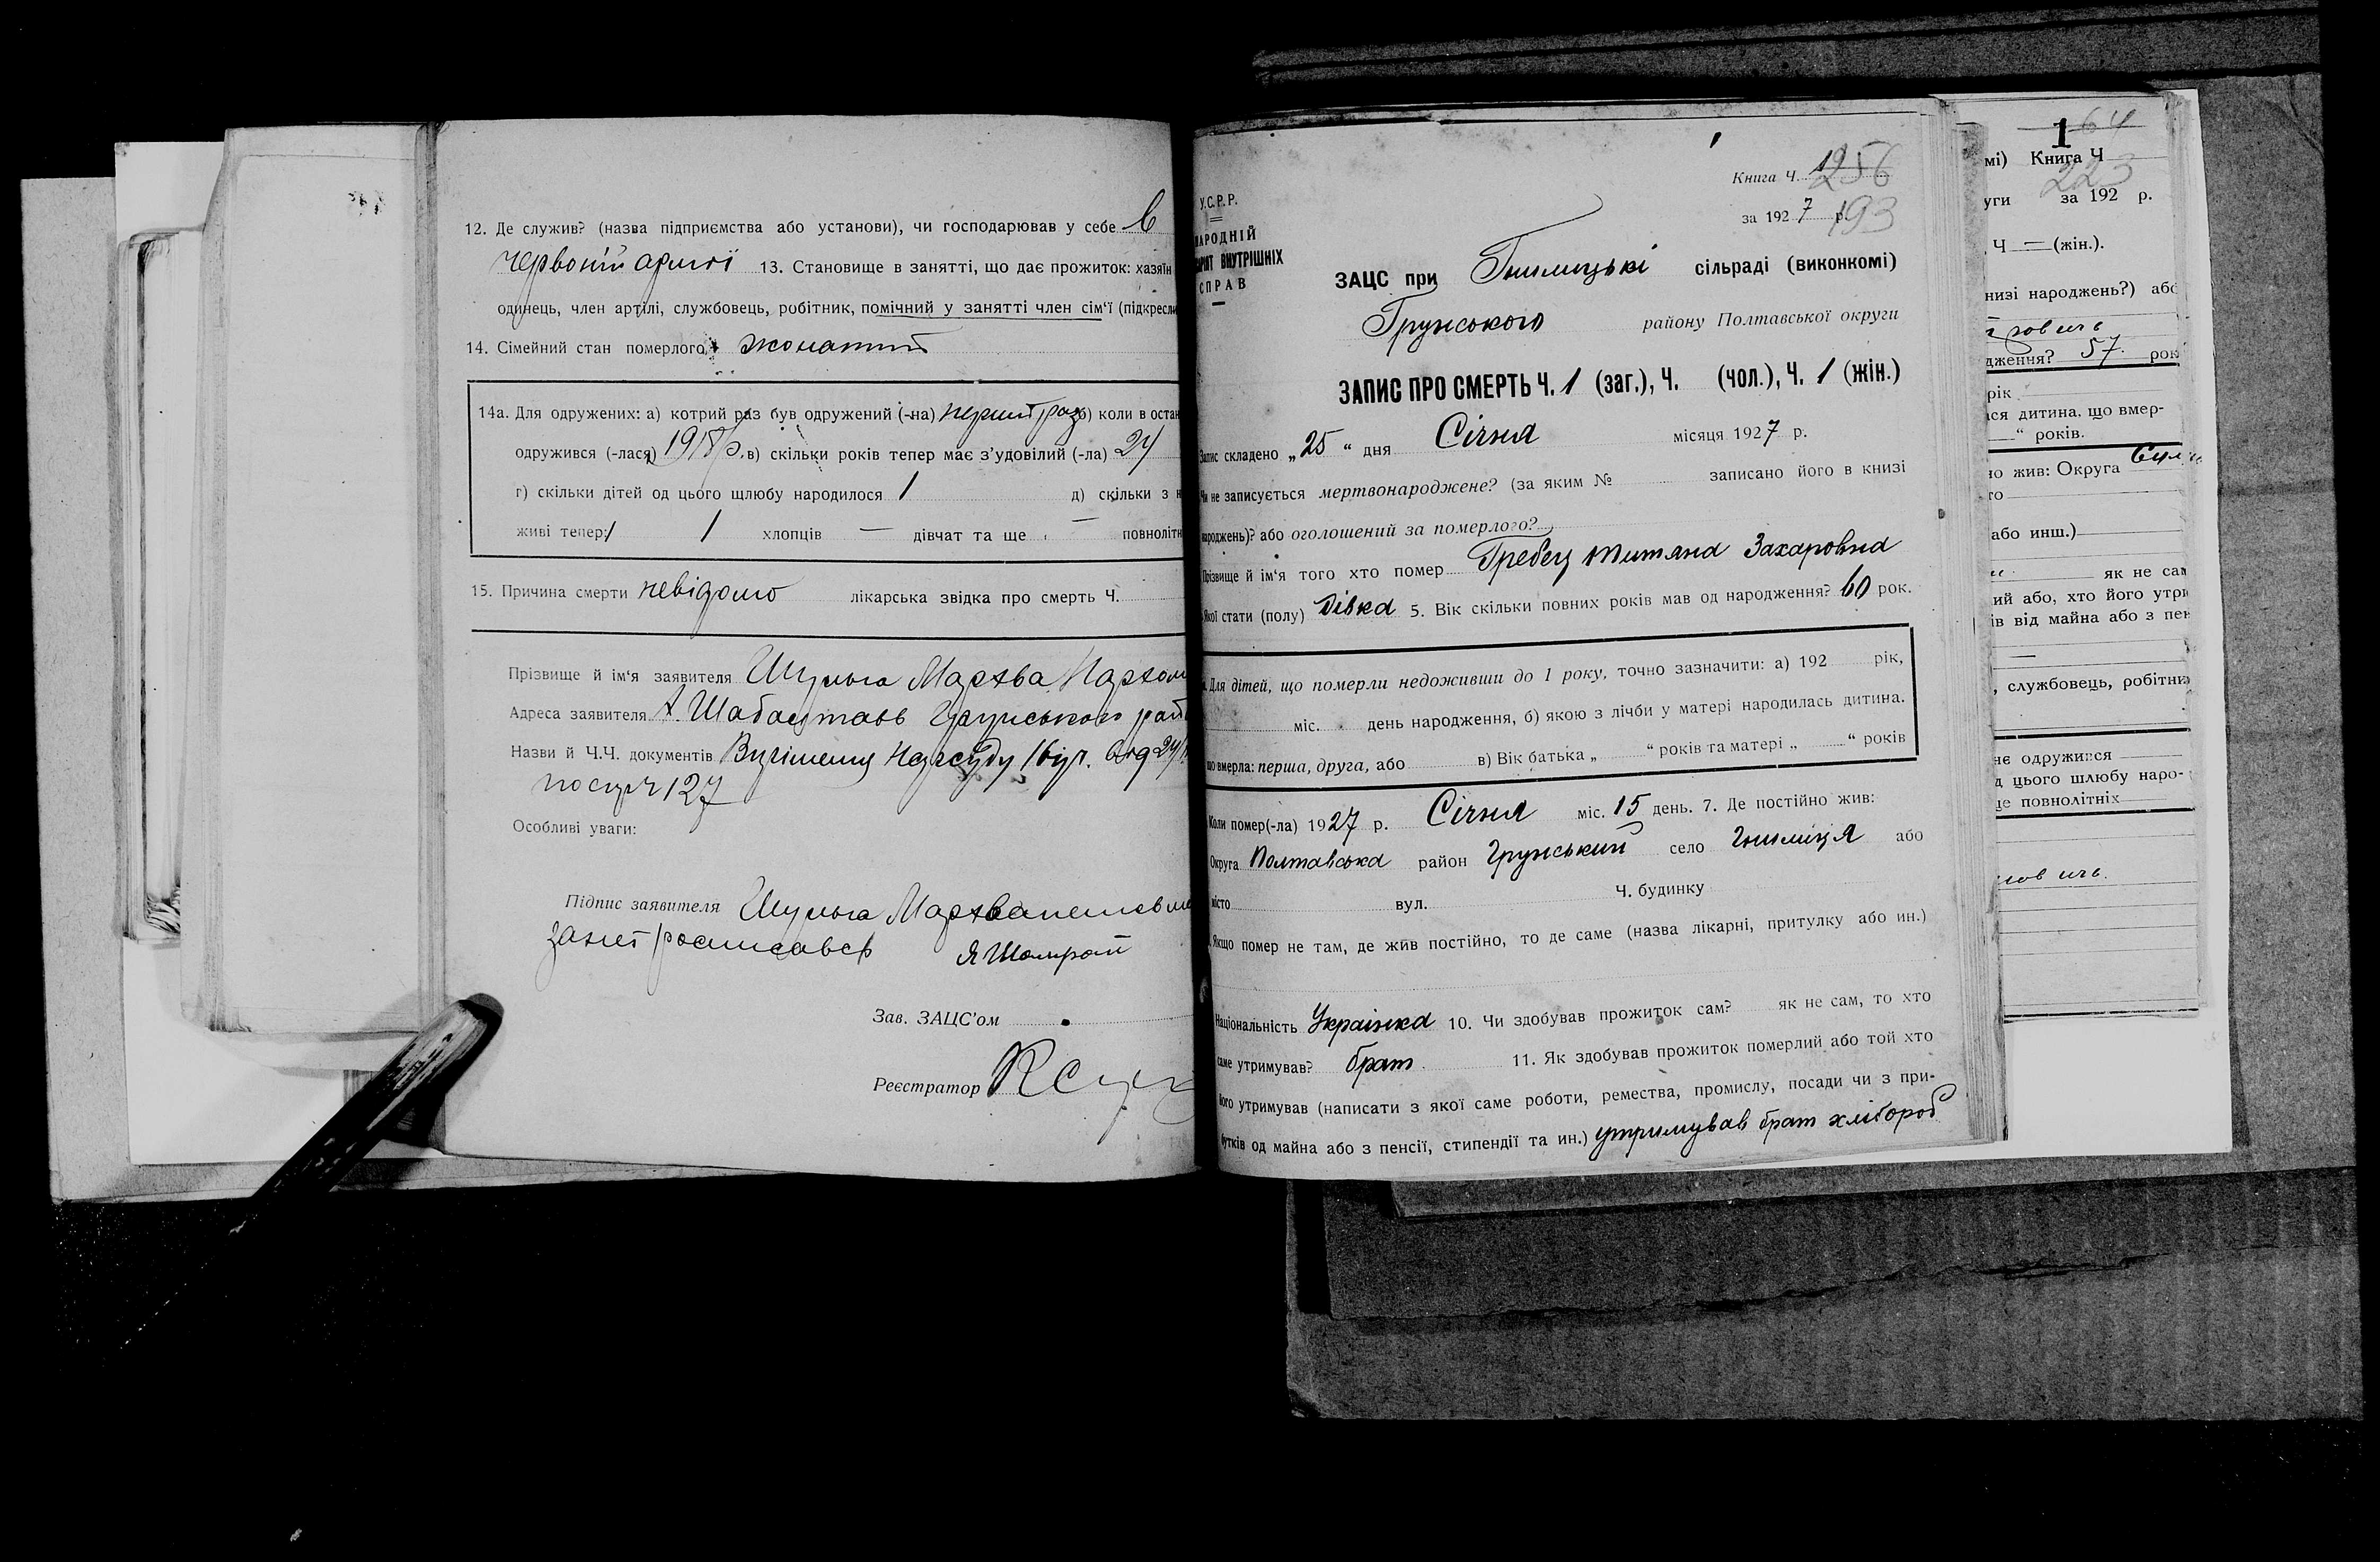 12. Де служив? (назва підприємства або установи), чи господарював у себе в
червоній армії 13. Становище в занятті, що дає прожиток: хазяїн
одинець, член артілі, службовець, робітник, помічний у занятті член сім'ї (підкресли
14. Сімейний стан померлого жонатий
14а. Для одружених: а) котрий раз був одружений (-на) перший раз б) коли в остан
одружився (-лася) 1918 р. в) скільки років тепер має з'удовілий (-ла) 24
г) скільки дітей од цього щлюбу народилося 1 д) скільки з н
живі тепер: 1 хлопців — дівчат та ще — повнолітн
15. Причина смерти невідомо лікарська звідка про смерть Ч.
Прізвище й ім'я заявителя Шульга Мархва Пархом
Адреса заявителя х. Шабалтаєв Грунського рай
Назви й Ч.Ч. документів Нарсуду від 24/
127
Особливі уваги:
Підпис заявителя Шульга Мархва
за неї росписавсь Я Шамрай
Зав. ЗАЦС'ом
Реєстратор
У.С.Р.Р.
НАРОДНІЙ
ВНУТРІШНІХ
СПРАВ
Книга Ч. 1 256
за 1927 р. 193
ЗАЦС при Гнилицькі сільраді (виконкомі)
Грунського району Полтавської округи
ЗАПИС ПРО СМЕРТЬ Ч. 1 (заг.), Ч. (чол.), Ч. 1 (жін.)
Запис складено „25“ дня Січня місяця 1927 р.
Чи не записується мертвонароджене? (за яким № записано його в книзі
народжень)? або оголошений за померлого?
Прізвище й ім'я того хто помер Гребец Титяна Захаровна
Якої стати (полу) дівка 5. Вік скільки повних років мав од народження? 60 рок.
Для дітей, що померли недоживши до 1 року, точно зазначити: а) 192 рік,
міс. день народження, б) якою з лічби у матері народилась дитина.
що вмерла: перша, друга, або в) Вік батька „ “ років та матері „ “ років
Коли помер(-ла) 1927 р. Січня міс. 15 день. 7. Де постійно жив:
Округа Полтавська район Грунський село Гнилиця або
місто вул. Ч. будинку
Якщо помер не там, де жив постійно, то де саме (назва лікарні, притулку або ин.)
Національність Українка 10. Чи здобував прожиток сам? як не сам, то хто
саме утримував? брат 11. Як здобував прожиток померлий або той хто
його утримував (написати з якої саме роботи, ремества, промислу, посади чи з при-
бутків од майна або з пенсії, стипендії та ин.) утримував брат хлібороб
1 64
мі) Книга Ч
223
уги за 192 р.
Ч — (жін.).
низі народжень?) або
дження? 57 рок
рік
ся дитина, що вмер-
—“ років.
но жив: Округа
го
або инш.)
як не сам
ий або, хто його утри
ів від майна або з пен
, службовець, робітни
не одружився
д цього шлюбу наро-
ще повнолітніх